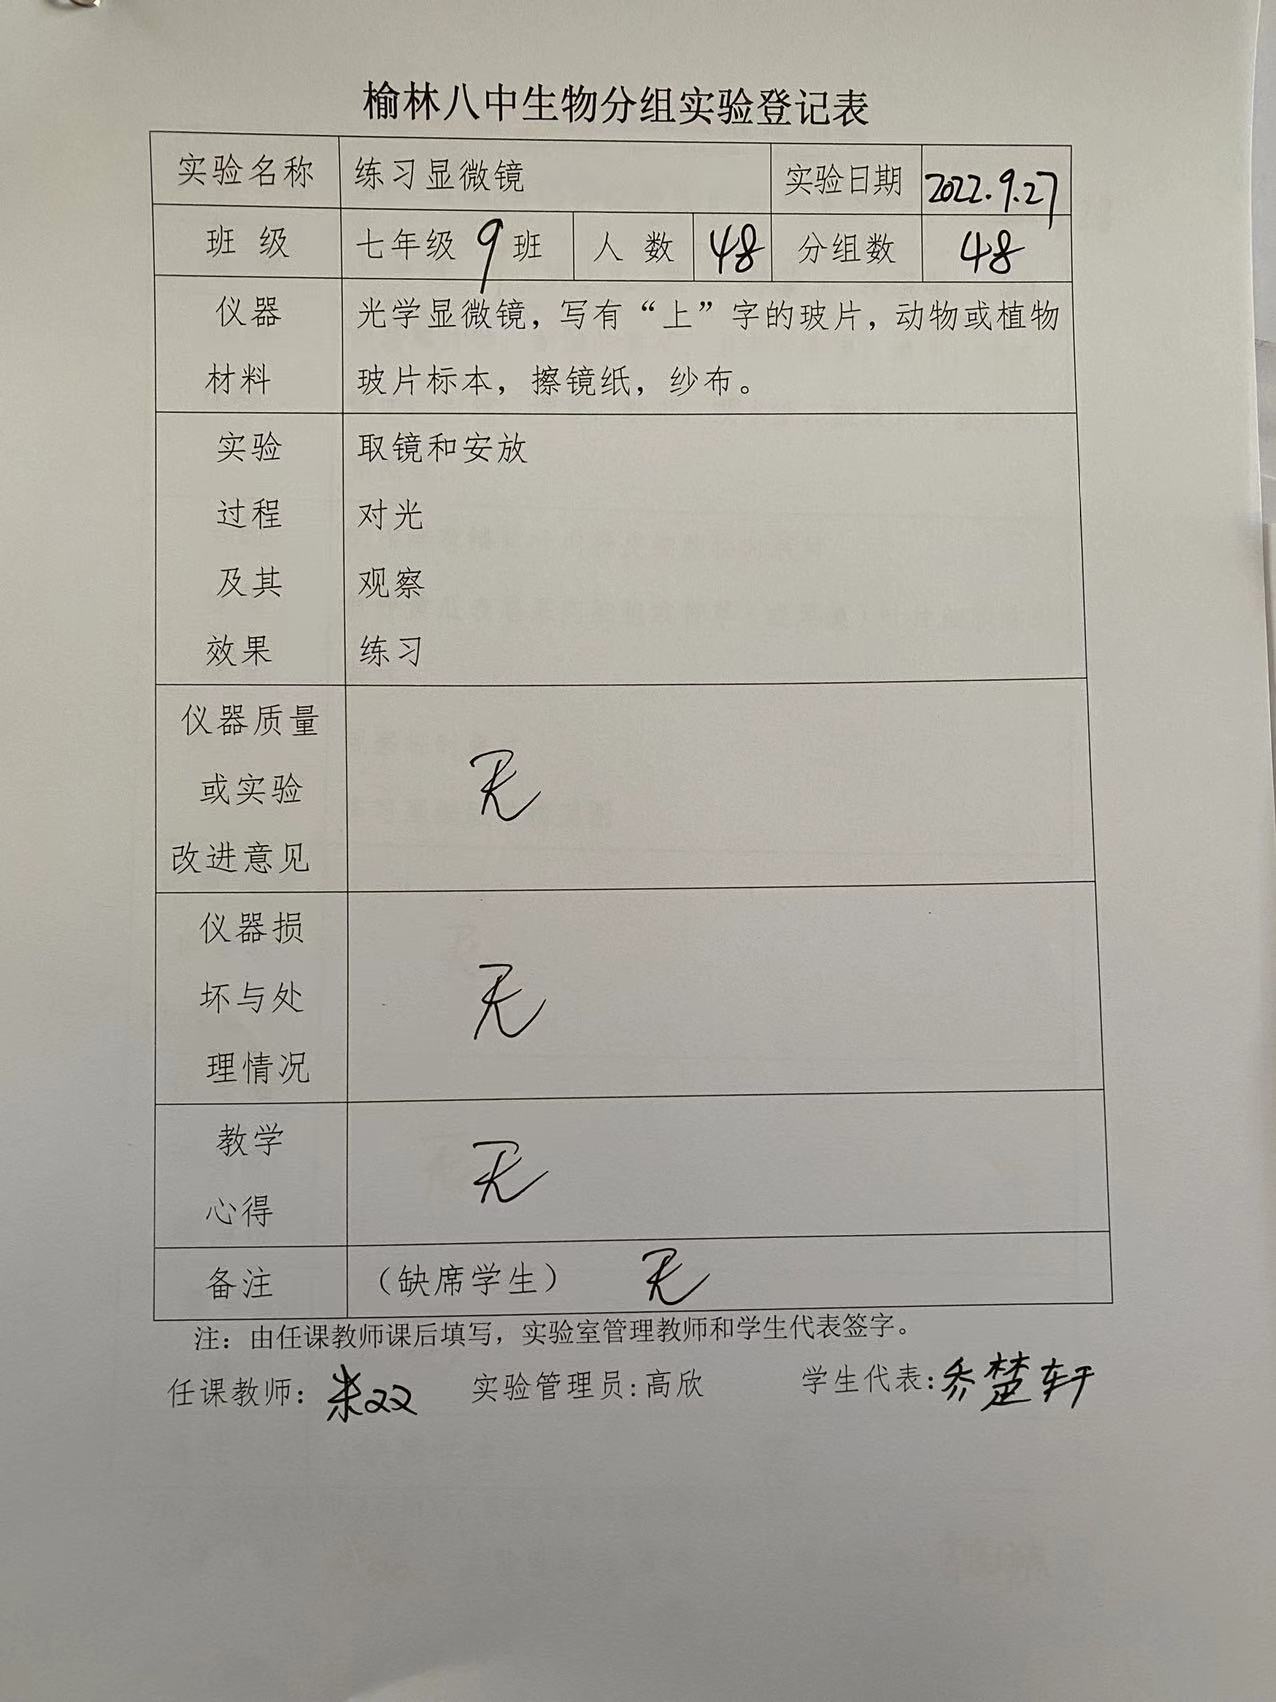 榆林八中生物分组实验登记表
实验名称 练习显微镜 实验日期 2022.9.27
班 级 七年级 9 班 人 数 48 分组数 48
仪器 光学显微镜，写有“上”字的玻片，动物或植物
材料 玻片标本，擦镜纸，纱布。
实验 取镜和安放
过程 对光
及其 观察
效果 练习
仪器质量
或实验 无
改进意见
仪器损
坏与处 无
理情况
教学 无
心得
备注 （缺席学生） 无
注：由任课教师课后填写，实验室管理教师和学生代表签字。
任课教师： 双双 实验管理员:高欣 学生代表:乔楚轩